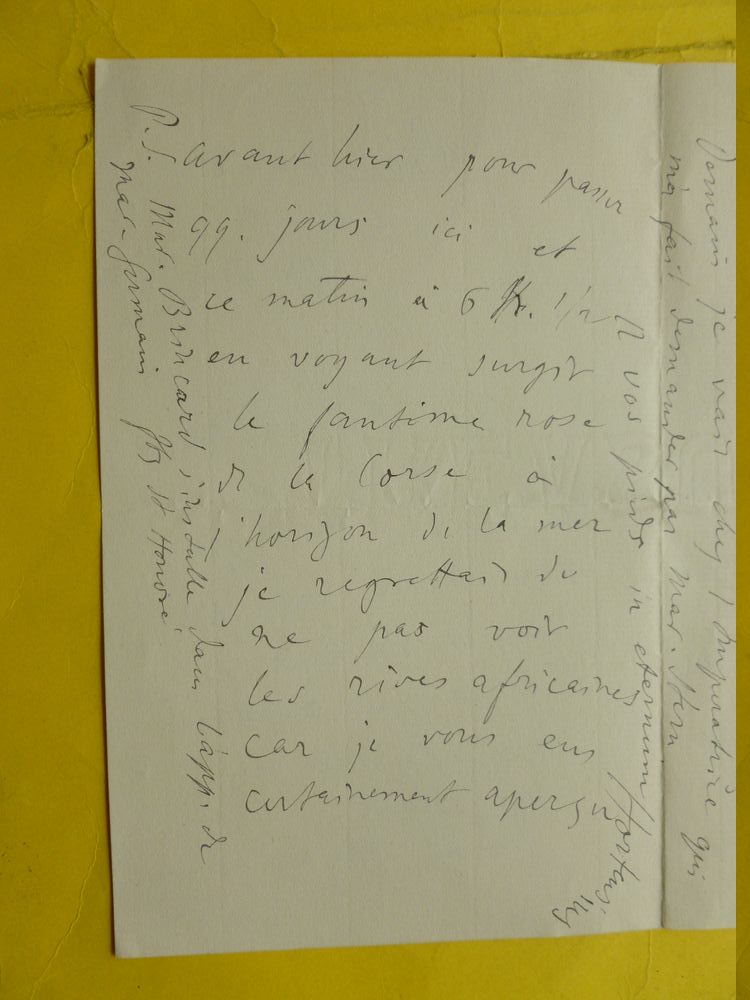 avant hier pour passer
qq. jours ici et
ce matin à 6 h. 1/2
en voyant surgir
le fantôme rose
de la Corse à
l'horizon de la mer
je regrettais de
ne pas voir
les rives africaines
car je vous eus
certainement aperçu
A vos pieds in eternum
P.S. Mar. Brincard s'installe dans l'app. de
Mar. Germain fbg St Honoré.
Demain je vais chez l'Impératrice qui
m'a fait demander par Mar. Stern